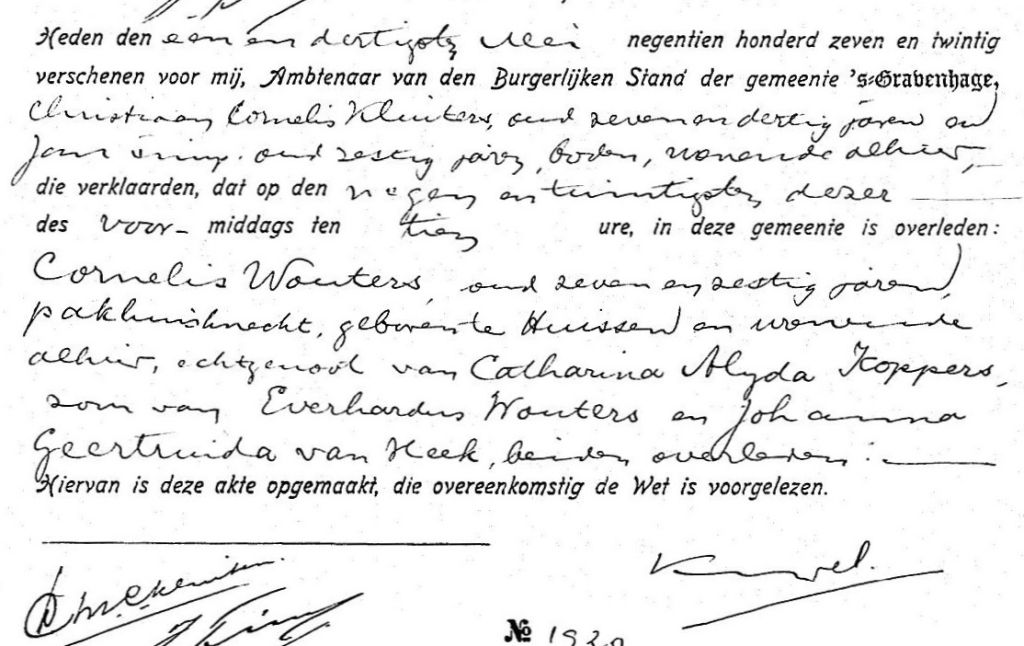 Heden den een en dertigsten Mei negentien honderd zeven en twintig
verschenen voor mij, Ambtenaar van den Burgerlijken Stand der gemeente 's-Gravenhage,
Christiaan Cornelis Kluiters, oud zeven en dertig jaren en
Jan oud zestig jaren, boden, wonende alhier,
die verklaarden, dat op den negen en twintigsten dezer
des voor- middags ten tien ure, in deze gemeente is overleden:
Cornelis Wouters, oud zeven en zestig jaren,
pakhuisknecht, geboren te Huissen en wonende
alhier, echtgenoot van Catharina Alyda Koppers,
zoon van Everhardus Wouters en Johanna
Geertruida van Heek, beiden overleden.
Hiervan is deze akte opgemaakt, die overeenkomstig de Wet is voorgelezen.
№ 192